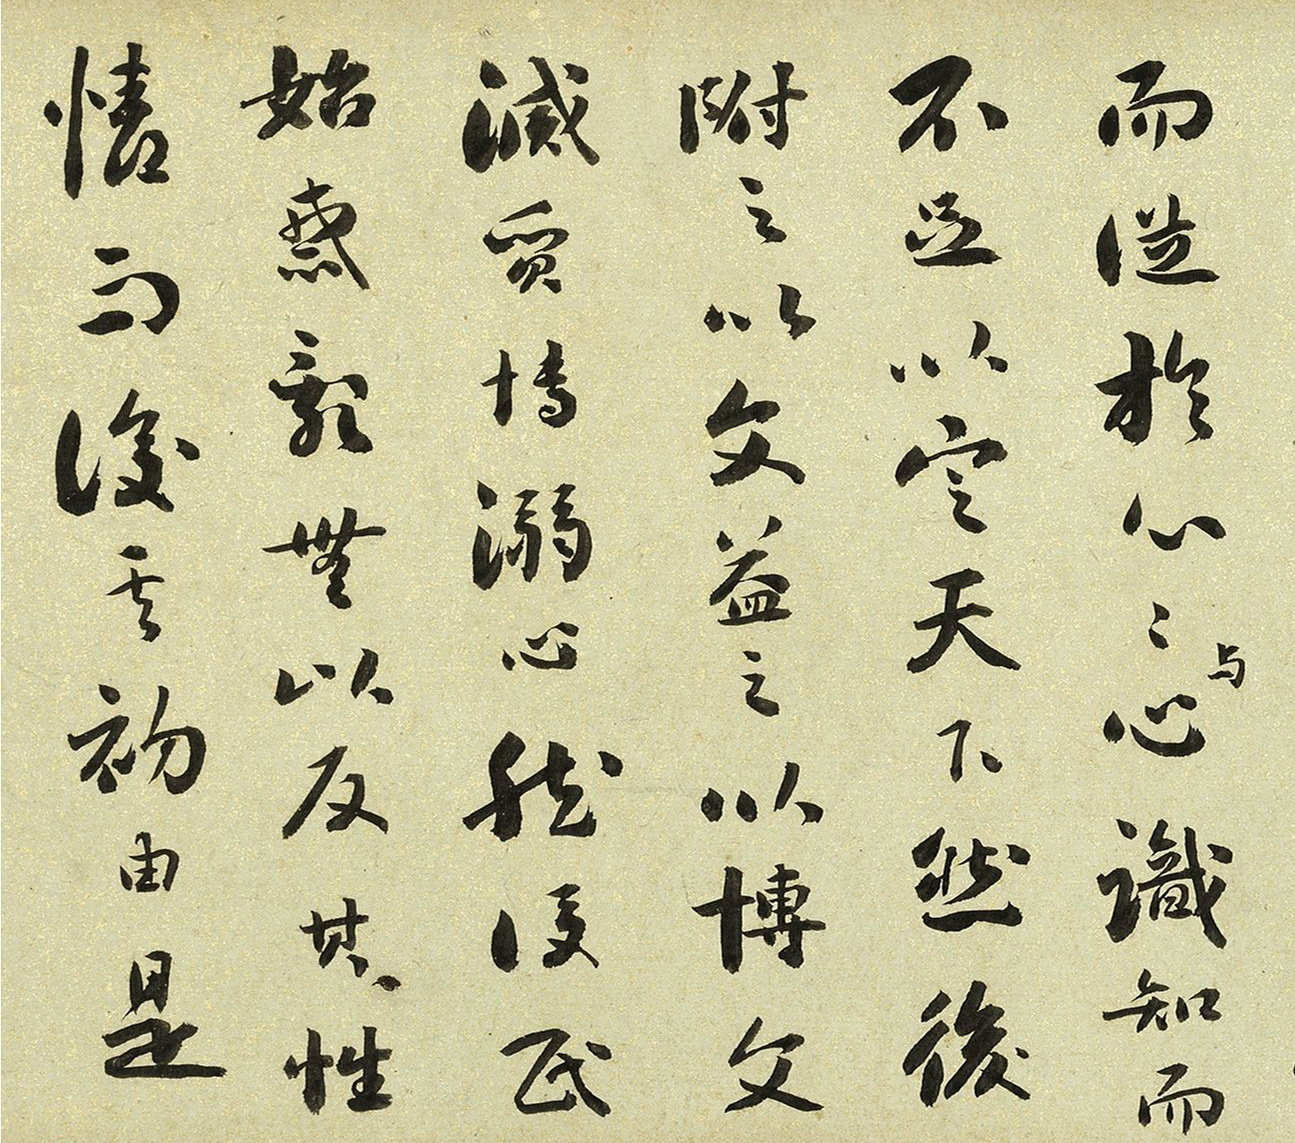 而從於心〻与心識知而
不足以定天下然後
附之以文益之以博文
滅質博溺心然後民
始惑亂無以反其性
情而復其初由是